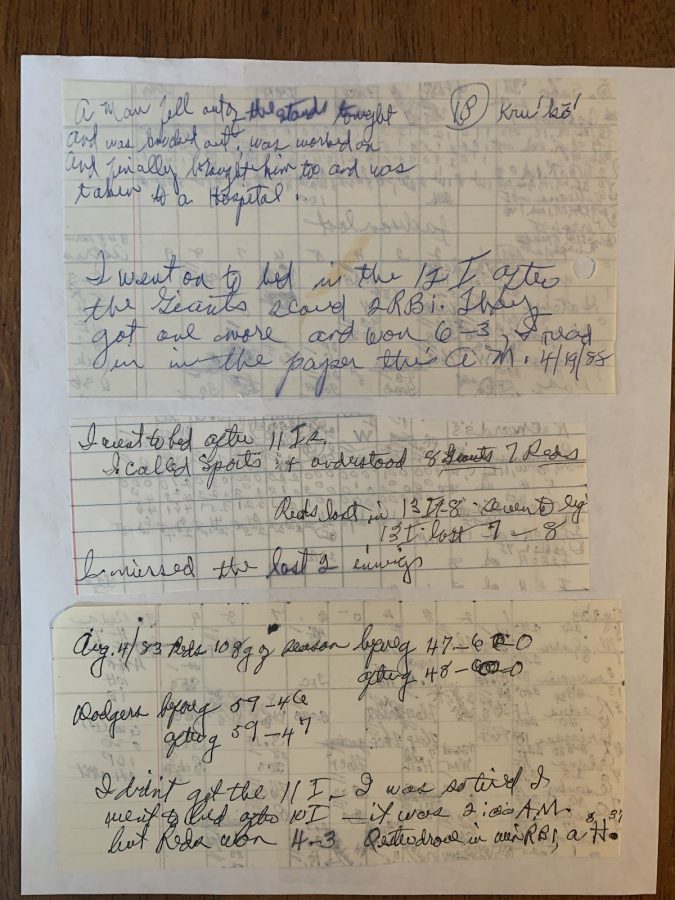 A Man fell out of the stands tonight
and was knocked out, was worked on
and finally brought him too and was
taken to a Hospital.
18 Kru' kō'
I went on to bed in the 12 I after
the Giants scored 2 RBi. They
got one more and won 6-3, I read
in the paper this A M. 4/19/88
I went to bed after 11 Is.
I called Sports & understood 8 Giants 7 Reds
Reds lost in 13 I 7-8
13 I lost 7-8
I missed the last 2 innings
Aug. 4/83 Reds 108 g of season before g 47-60-0
after g 48-60-0
Dodgers before g 59-46
after g 59-47
I didn't get the 11 I - I was so tired I
went to bed after 10 I - it was 2:00 A.M.
but Reds won 4-3 drove in RBI, a H.